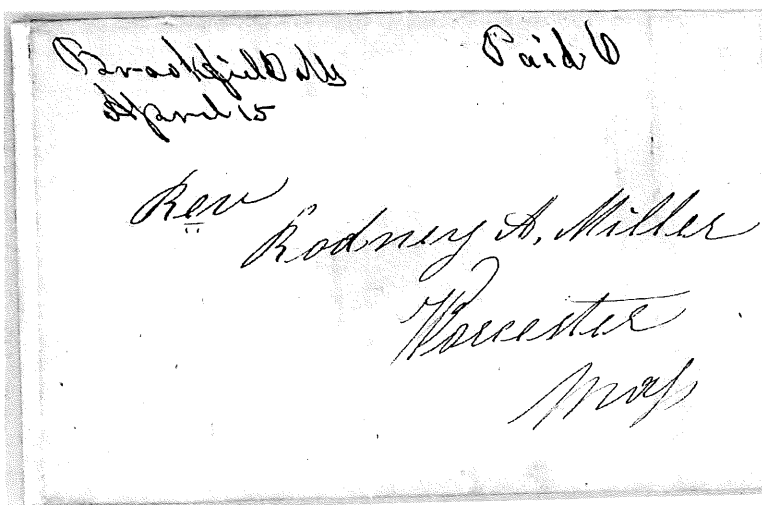 Brookfield Ms Paid 6
April 15
Rev
Rodney A. Miller
Worcester
Mass